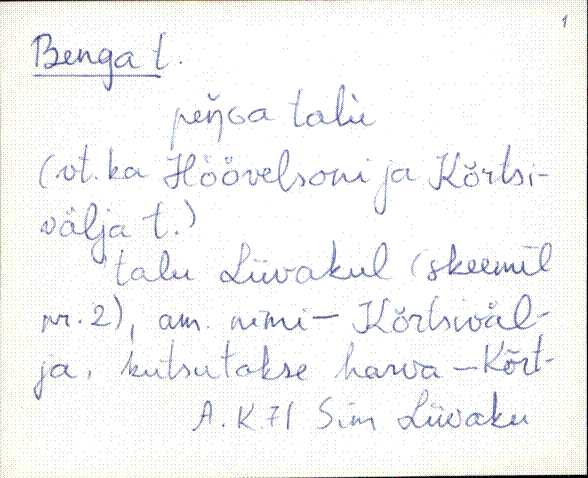 1
Benga t.
peŋGa talu
(vt. ka Höövelsoni ja Kõrtsi-
välja t.)
talu Liivakul (skeemil
nr. 2), am. nimi – Kõrtsiväl-
ja, kutsutakse harva – Kõrt-
A. K. 71 Sim Liivaku